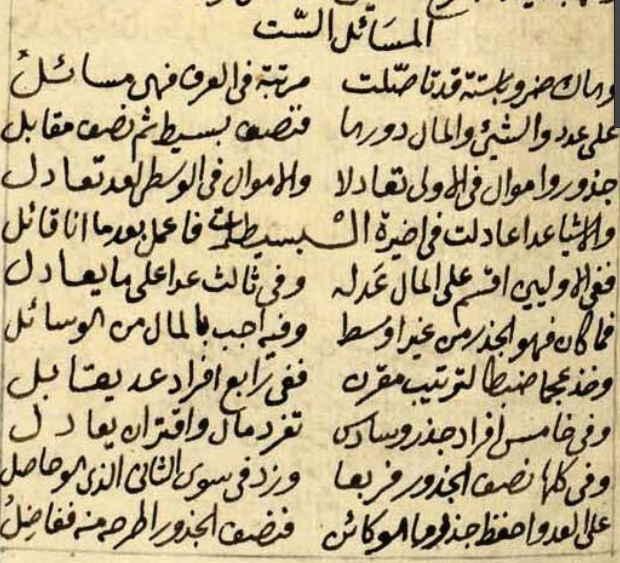 المسائل الست
وهاك ضروبا ستة قد تأصلت مرتبة في العرف فهي مسائل
على عدد والشيء والمال دورها فنصف بسيط ثم نصف مقابل
جذور واموال في الاولى تعادلا والاموال في الوسطى لعد تعادل
والاشيا عدا عادلت في اخيرة البسيطات فاعمل بعد ما انا قائل
ففي الاوليين اقسم على المال عدله وفي ثالث عدا على ما يعادل
فما كان فهو الجذر من غير اوسط وفيه اجب بالمال من الوسائل
وخذ عجما ضبطا لترتيب مقرن ففي رابع افراد عد يقابل
وفي خامس افراد جذر وسادس تفرد مال واقتران يعادل
وفي كلها نصف الجذور فربعا وزد في سوى الثاني الذي هو حاصل
على العد واحفظ جذر ما هو كائن فنصف الجذور اطرحه منه ففاضل